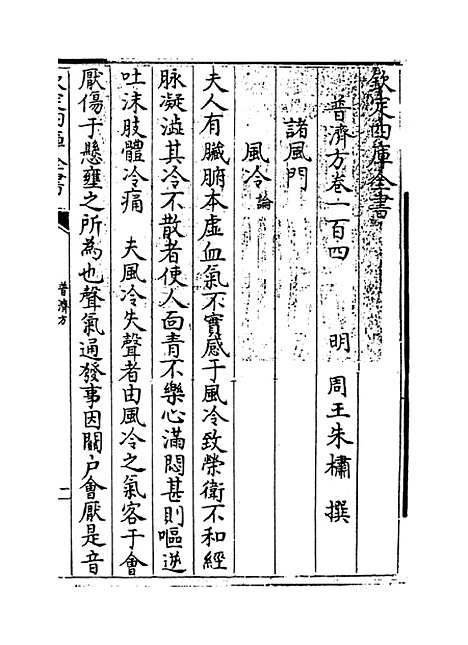 欽定四庫全書
普濟方卷一百四
明 周王朱橚 撰
諸風門
風冷論
夫人有臟腑本虛血氣不實感于風冷致榮衛不和經
脉凝澁其冷不散者使人面青不樂心滿悶甚則嘔逆
吐沫肢體冷痛 夫風冷失聲者由風冷之氣客于會
厭傷于懸壅之所為也聲氣通發事因關户會厭是音
欽定四庫全書
普濟方
二